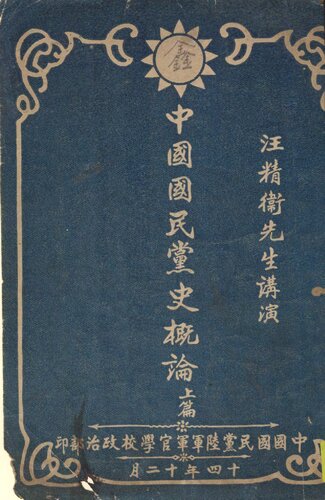 鑫
汪精衞先生講演
中國國民黨史概論
上篇
中國國民黨陸軍軍官學校政治部印
十四年十二月